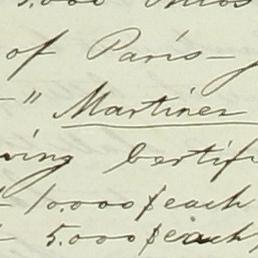 5.000
of Paris-
-" Martinez
ving Certif
10.000 $ each
5.000 $ each